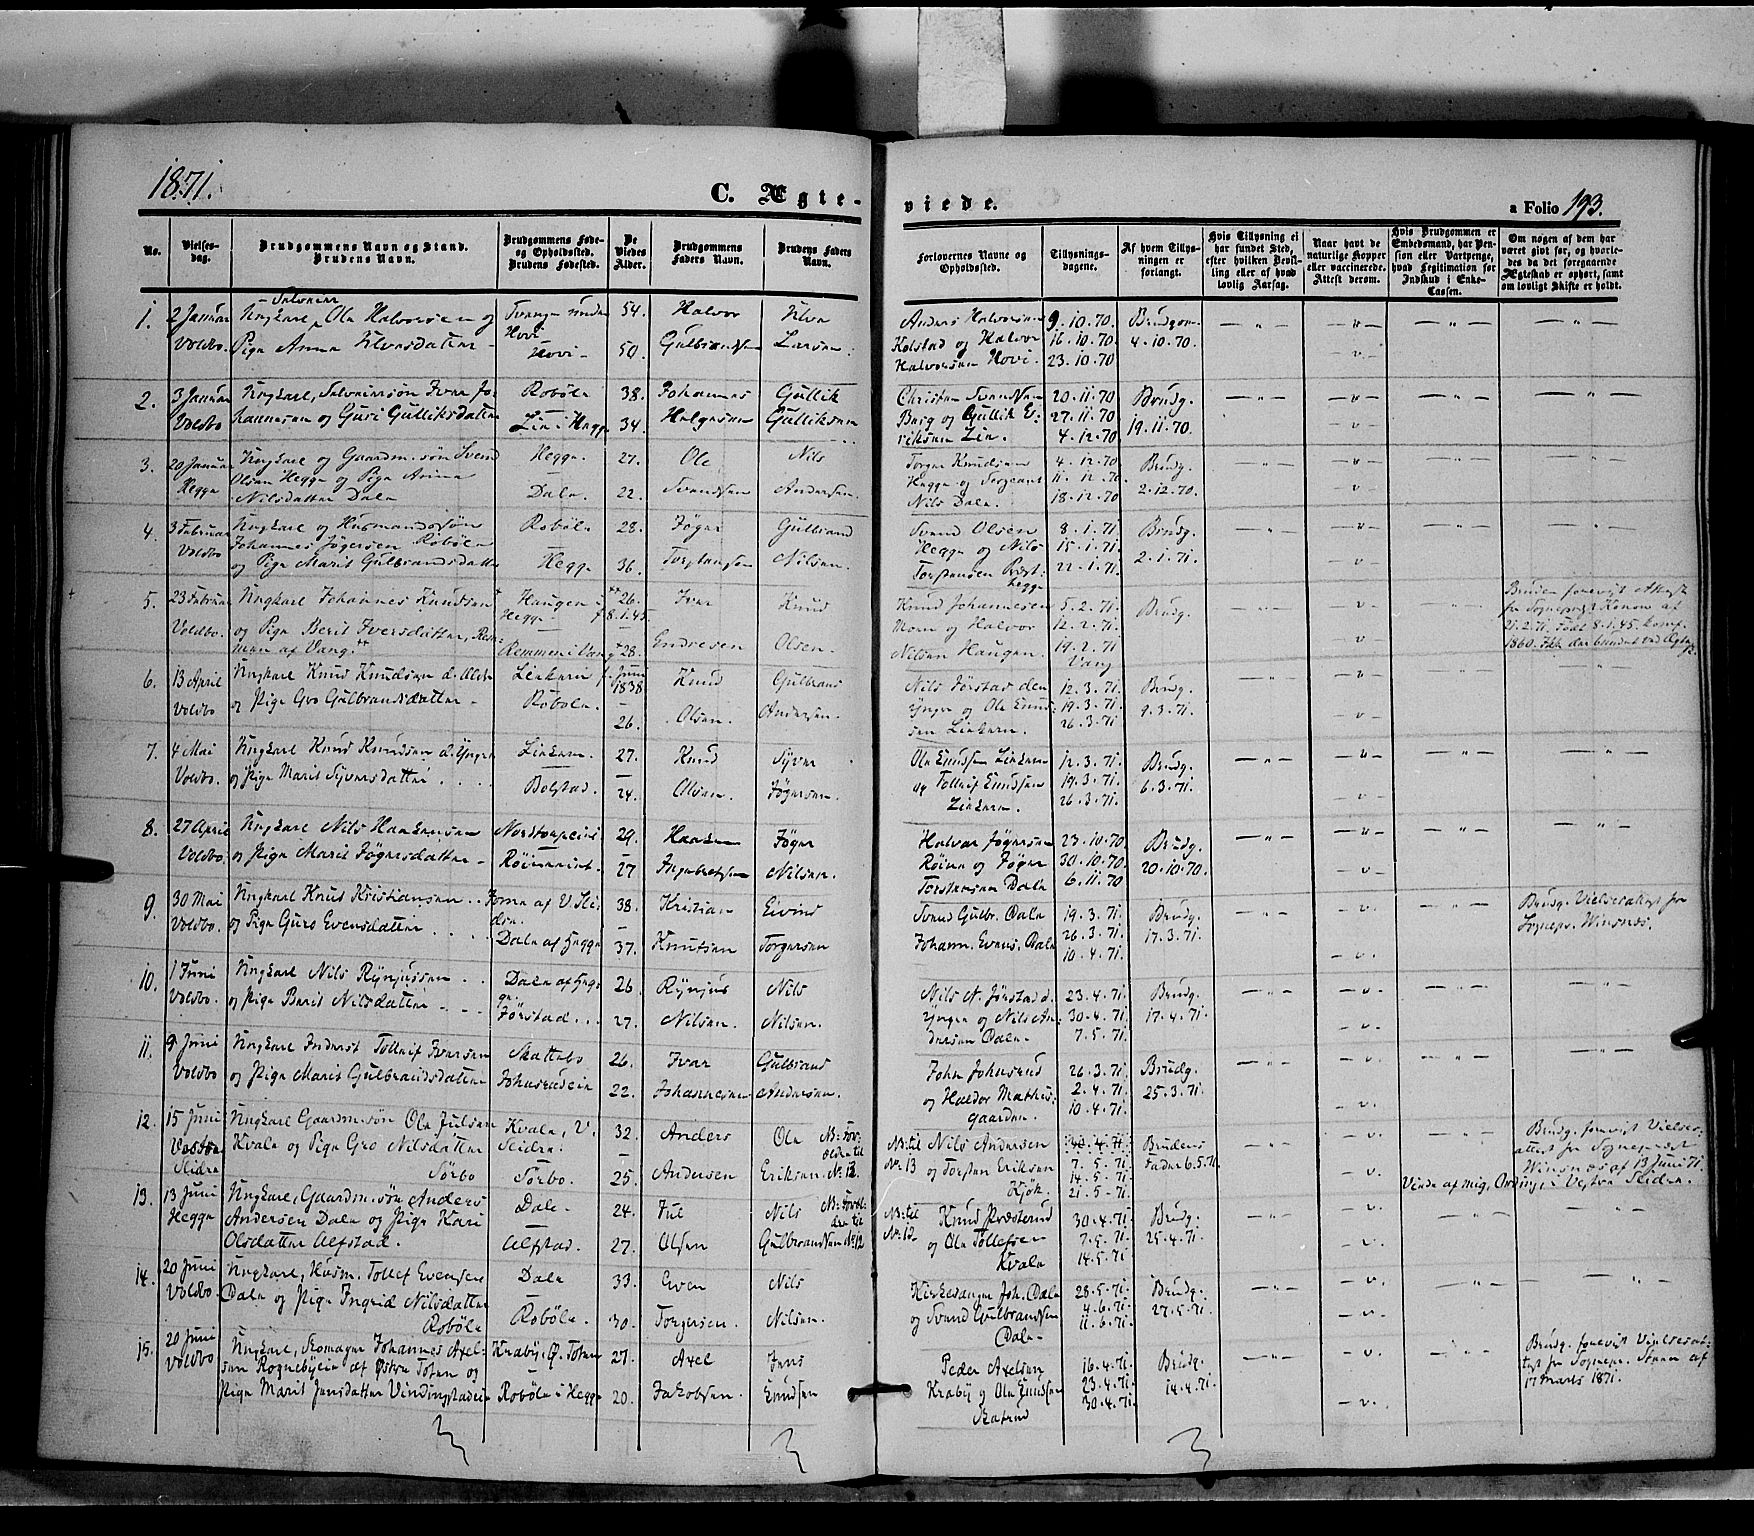 1871.
C. Ægte-
viede.
a Folio 193.
No.
Vielses-
dag.
Brudgommens Navn og Stand.
Brudens Navn.
Brudgommens Føde-
og Opholdsted.
Brudens Fødested.
De
Viedes
Alder.
Brudgommens
Faders Navn.
Brudens Faders
Navn.
Forlovernes Navne og
Opholdsted.
Tillysnings-
dagene.
Af hvem Tillys-
ningen er
forlangt.
Hvis Tillysning ei
har fundet Sted,
efter hvilken Bevil-
ling eller af hvad
lovlig Aarsag.
Naar havt de
naturlige Kopper
eller vaccinerede.
Attest derom.
Hvis Brudgommen er
Embedsmand, har Pen-
sion eller Vartpenge,
hvad Legitimation for
Indskud i Enke-
Cassen.
Om nogen af dem har
været givt før, og hvorle-
des da det foregaaende
Ægteskab er ophørt, samt
om lovligt Skifte er holdt.
1. 2 Januar Ungkarl Ola Halvorsen og 54. Halvor Elva Anders Halvorsen 9.10.70. Brudgom
Voldbo. Pige Anna Elvasdatter Hovi 50. Gulbrandsen Larsen. Kolstad og Halvor 16.10.70 4.10.70.
Halvorsen Hovi. 23.10.70
2. 3 Januar Ungkarl, Selveiersøn Ivar Jo- Robøle 38. Johannes Gullik Christen Svendsen 20.11.70 Brudg.
Voldbo hannesen og Guri Gulliksdatter Lie i Hegge 34. Helgesen Gulliksen Barg og Gullik E- 27.11.70 19.11.70.
riksen Lie. 4.12.70
3. 20 Januar Ungkarl og Gaardm.søn Svend Hegge. 27. Ole Nils Torger Knudsen 4.12.70 Brudg.
Hegge Olsen Hegge og Pige Anna Dale. 22. Svendsen Andersen. Hegge og Sergeant 11.12.70 2.12.70.
Nilsdatter Dale Nils Dale. 18.12.70
4. 3 Februar Ungkarl og Husmandssøn Robøle 28. Jøger Gulbrand Svend Olsen 8.1.71 Brudg.
Voldbo Johannes Jøgersen Robøle Hegge og Nils 15.1.71. 2.1.71.
og Pige Marit Gulbrandsdatter Hegge 36. Torstensen Nilsen. Torstensen Præst- 22.1.71.
hegge
5. 23 Februar Ungkarl Johannes Knudsen Haugen i 26. Ivar Knud Knud Johannesen 5.2.71. Brudg. Bruden forevist Attest
Hegge f. 8.1.45. fr Sognepr. Konow af
Voldbo. og Pige Berit Iversdatter, Rem- Moen og Halvor 12.2.71. 21.2.71. Født 8.1.45. konf.
men af Vang. Remmen i Vang 28. Endresen Olsen. Nilsen Haugen. 19.2.71 1860.
Vang
6. 13 April Ungkarl Knud Knudsen d. Ældre Liekarn f. Juni 1838 Knud Gulbrand Nils Jørstad den 12.3.71. Brudg.
Voldbo og Pige Gro Gulbrandsdatter Robøle. 26. Olsen. Andersen. yngre og Ole Knud- 19.3.71. 9.3.71.
sen Liekarn. 26.3.71
7. 4 Mai Ungkarl Knud Knudsen d. Yngre Liekarn. 27. Knud Syver Ole Knudsen Liekarn 12.3.71. Brudg.
Voldbo. og Pige Marit Syversdatter Bolstad. 24. Olsen. Jøgersen. og Tolleif Knudsen 19.3.71. 6.3.71.
Liekarn. 26.3.71.
8. 27 April Ungkarl Nils Haakensen 29. Haaken Jøger Halvor Jøgersen 23.10.70 Brudg.
Voldbo. og Pige Marit Jøgersdatter 27 Ingebretsen Nilsen. Røine og Jøger 30.10.70 20.10.70.
Torstensen Dale 6.11.70
9. 30 Mai Ungkarl Knud Kristiansen Fome af V. Sli- 38. Kristian Eivind Svend Gulbr. Dale 19.3.71. Brudg. Brudg. Vielsesattest fr
dre.
Voldbo. og Pige Guro Evensdatter Dale af Hegge 37. Knutsen Torgersen Johann. Evens. Dale 26.3.71. 17.3.71. Sognepr. Winsnes.
10.4.71.
10. 1 Juni Ungkarl Nils Rynjussen Dale af Heg- 26. Rynjus Nils Nils N. Jørstad d. 23.4.71. Brudg.
ge.
Voldbo. og Pige Berit Nilsdatter Jørstad 27. Nilsen. Nilsen. Yngre og Nils An- 30.4.71. 17.4.71.
dersen Dale. 7.5.71.
11. 9 Juni Ungkarl Inderst Tolleif Ivarsen Skattebo 26. Ivar Gulbrand John Johnsrud 26.3.71. Brudg.
Voldbo og Pige Marit Gulbrandsdatter 22. Johannesen Andersen. og Haldor Mathis- 2.4.71. 25.3.71.
gaarden. 10.4.71.
12. 15 Juni Ungkarl Gaardm.søn Ole Julsen Kvale, V. 32. Anders Ole Nils Andersen Brudens Brudg. forevist Vielses-
Vestre Kvale og Pige Gro Nilsdatter Slidre. og Torsten Eriksen 7.5.71. Fader 6.5.71. attest fr Sognepræst
Slidre Sørbo Sørbo. 25. Andersen Eriksen. Kjøk. 14.5.71. 21.5.71. Winsnes af 13 Juni 71.
Viede af mig, Ordinger i Vestre Slidre.
13. 13 Juni Ungkarl, Gaardm.søn Anders Dale 24. Jul Nils Knud Præsterud 30.4.71. Brudg.
Hegge Andersen Dale og Pige Kari og Ole Tollefsen 7.5.71. 25.4.71.
Olsdatter Alfstad. Alfstad. 27. Olsen Gulbrandsen Kvale 14.5.71.
14. 20 Juni Ungkarl, Husm. Tollef Evensen Dale 33. Even Nils Kirkesanger Joh. Dale 28.5.71. Brudg.
Voldbo. Dale og Pige Ingrid Nilsdatter og Svend Gulbrandsen 4.6.71. 27.5.71.
Robøle Robøle. 30. Torgersen. Nilsen. Dale 11.6.71.
15. 20 Juni Ungkarl, Skomager Johannes Axel- Kraby, Ø. Toten 27. Axel Jens Peder Axelsen 16.4.71. Brudg. Brudg. forevist Vielsesat-
Voldbo sen Rognebyeie af Østre Toten og Kraby og Ole Knudsen 23.4.71. 14.4.71. test fr Sognepr. Strøm af
Pige Marit Jensdatter Robøle i Hegge 20. Jakobsen. Knudsen 30.4.71. 17 Marts 1871.